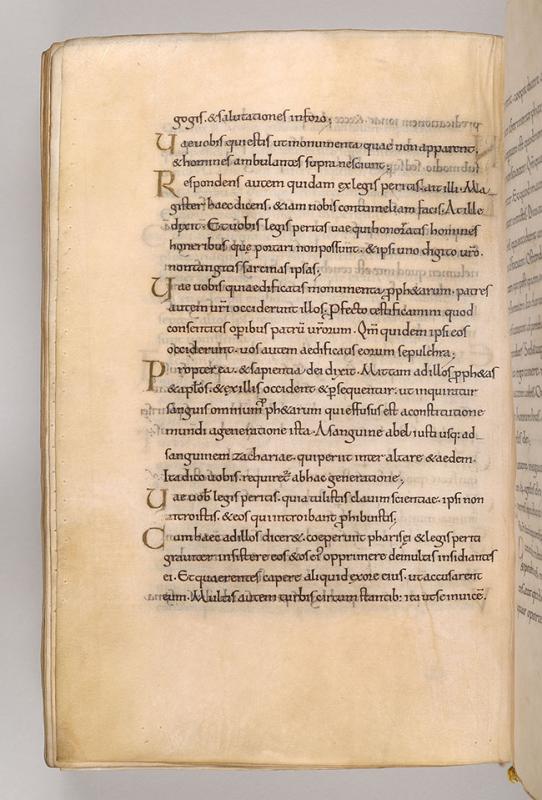 gogis. & salutationes in foro;
Uae vobis qui estis ut monumenta quae non apparent.
& homines ambulantes supra nesciunt;
Respondens autem quidam ex legis peritis. ait illi. Ma
gister haec dicens. & iam nobis contumeliam facis. At ille
dixit. Et vobis legis peritis vae qui honoratis homines
honeribus que portari non possunt. & ipsi uno digito uro.
non tangitis sarcinas ipsas;
Uae vobis qui aedificatis monumenta pph&arum. patres
autem uri occiderunt illos. Pfecto testificamini quod
consentitis opibus patrū urorum. Qm̄ quidem ipsi eos
occiderunt. vos autem aedificatis eorum sepulchra;
Propterea. & sapientia dei dixit. Mittam ad illos pph&as
& aplos. & ex illis occident & psequentur. ut inquiratur
sanguis omnium pph&arum qui effusus est a constitutione
mundi a generatione ista. A sanguine abel iusti usq: ad
sanguinem zachariae. qui periit inter altare & aedem.
Ita dico vobis. requir& ab hac generatione;
Uae vob legis peritis. quia tulistis clavim scientiae. ipsi non
introistis. & eos qui introibant phibuistis;
Cum haec ad illos dicer&. coeperunt pharisei & legis periti
graviter insistere eos & os ei opprimere de multis insidiantes
ei. Et quaerentes capere aliquid ex ore eius. ut accusarent
eum. Multis autem turbis circumstantib: ita ut se invicē.